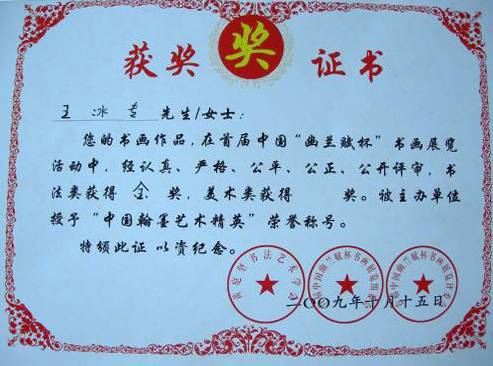 获奖 奖 证书
王冰 先生/女士:
您的书画作品,在首届中国“幽兰赋杯”书画展览
活动中,经认真、严格、公平、公正、公开评审,书
法类获得 金 奖,美术类获得 奖。被主办单位
授予“中国翰墨艺术精英”荣誉称号。
特颁此证 以资纪念。
庭坚书法艺术学
中国幽兰赋杯书画展
中国幽兰赋杯书画展
二〇〇九年十月十五日